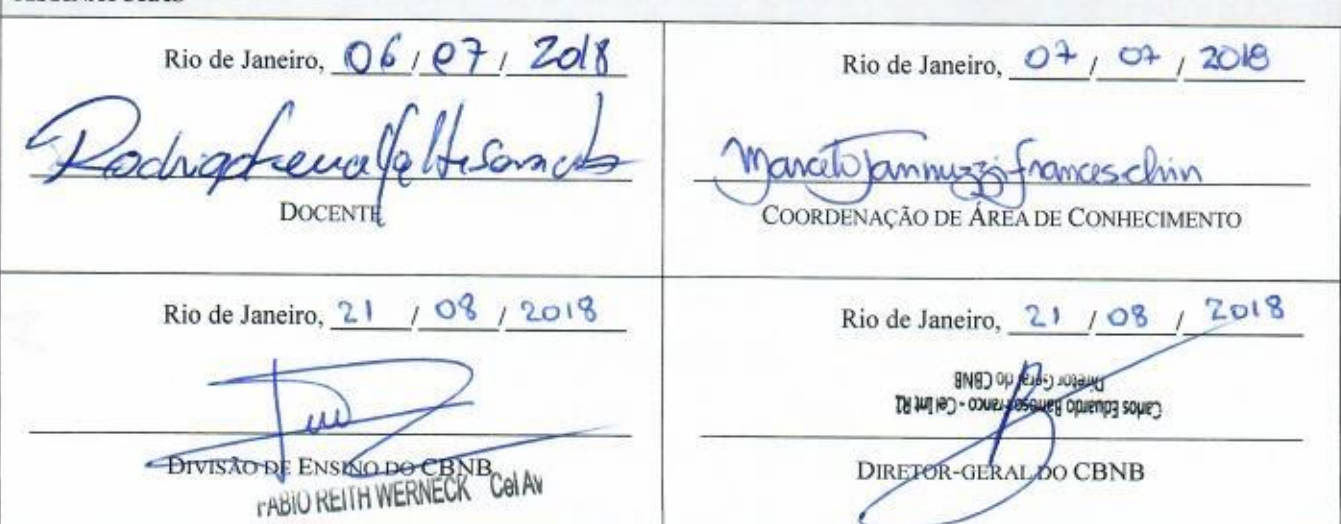 Rio de Janeiro, 06 / 07 / 2018
DOCENTE
Rio de Janeiro, 07 / 07 / 2018
Marcelo Jannuzzi Franceschin
COORDENAÇÃO DE ÁREA DE CONHECIMENTO
Rio de Janeiro, 21 / 08 / 2018
DIVISÃO DE ENSINO DO CBNB
FABIO REITH WERNECK Cel Av
Rio de Janeiro, 21 / 08 / 2018
Carlos Eduardo Barroso Franco - Cel Int R1
Diretor Geral do CBNB
DIRETOR-GERAL DO CBNB